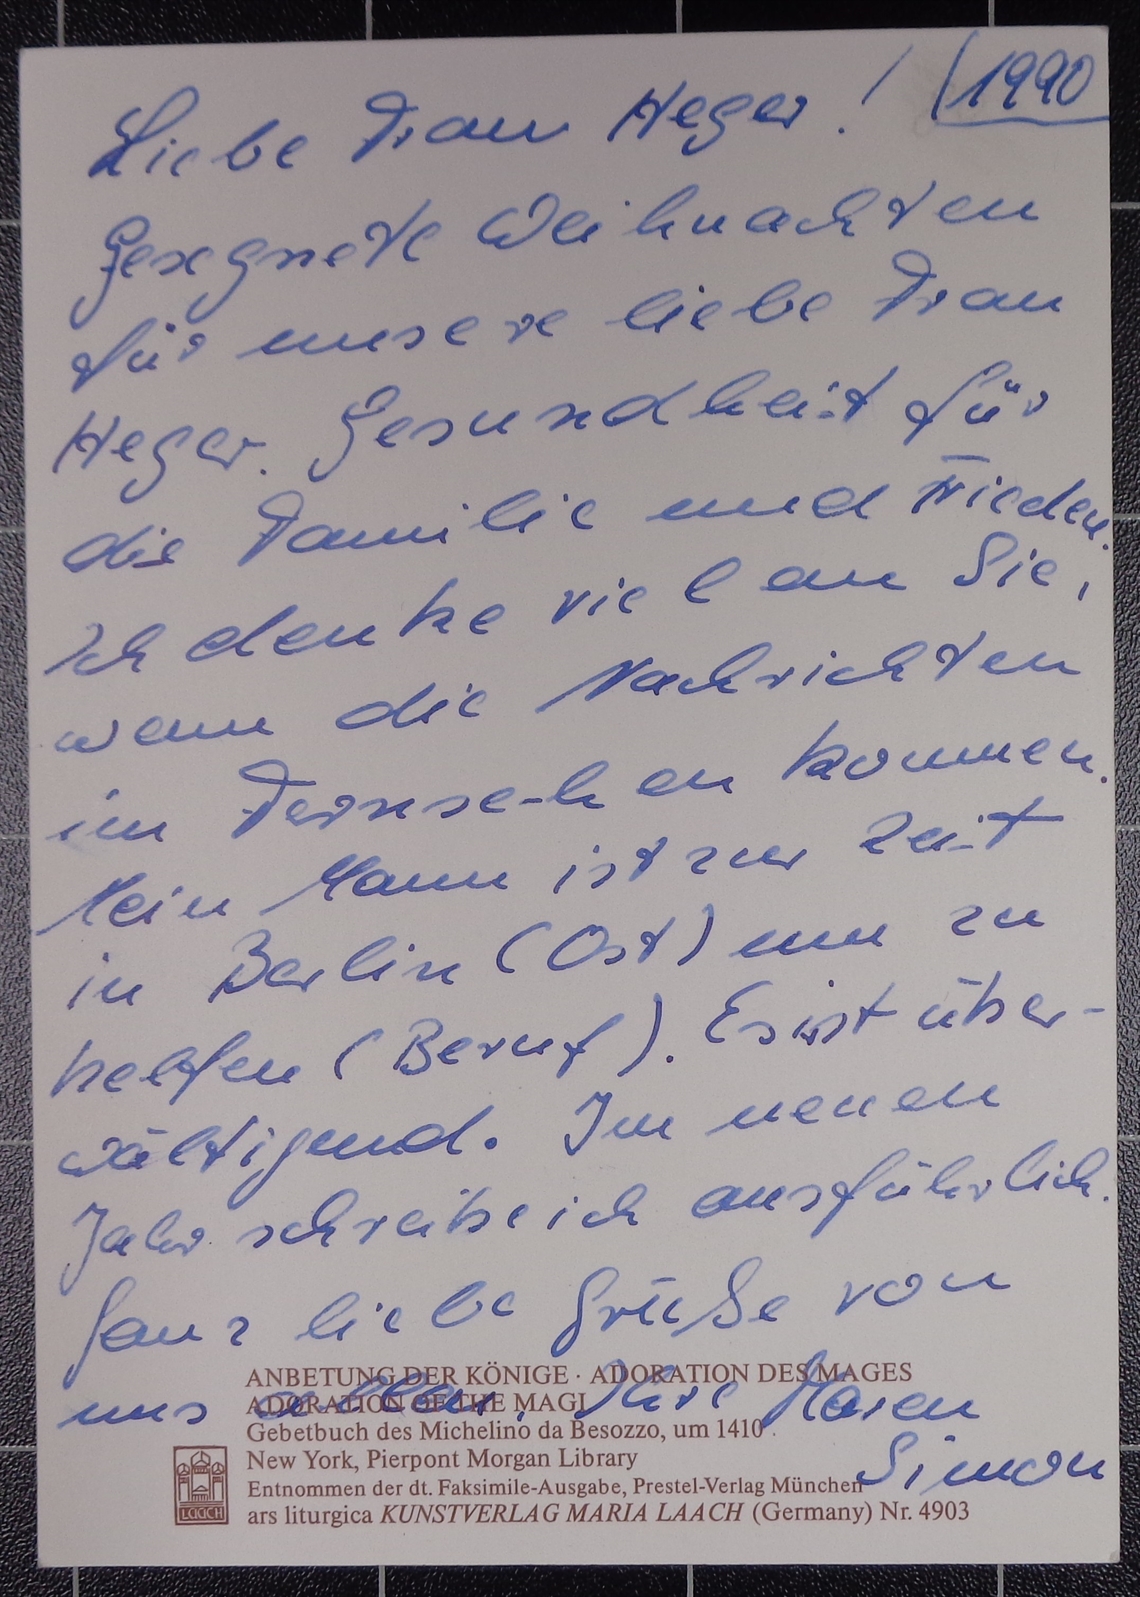 Liebe Frau Heger! /1990
Gesegnete Weihnachten
für unsere liebe Frau
Heger. Gesundheit für
die Familie und Frieden.
Ich denke viel an Sie,
wenn die Nachrichten
im Fernse-hen kommen.
Mein Mann ist zur Zeit
in Berlin (Ost) um zu
helfen (Beruf). Es ist über-
wältigend. Im neuen
Jahr schreibe ich ausführlich.
Ganz liebe Grüße von
uns allen. Ihre Maren
Simon
ANBETUNG DER KÖNIGE · ADORATION DES MAGES
ADORATION OF THE MAGI
Gebetbuch des Michelino da Besozzo, um 1410
New York, Pierpont Morgan Library
Entnommen der dt. Faksimile-Ausgabe, Prestel-Verlag München
LAACH
ars liturgica KUNSTVERLAG MARIA LAACH (Germany) Nr. 4903